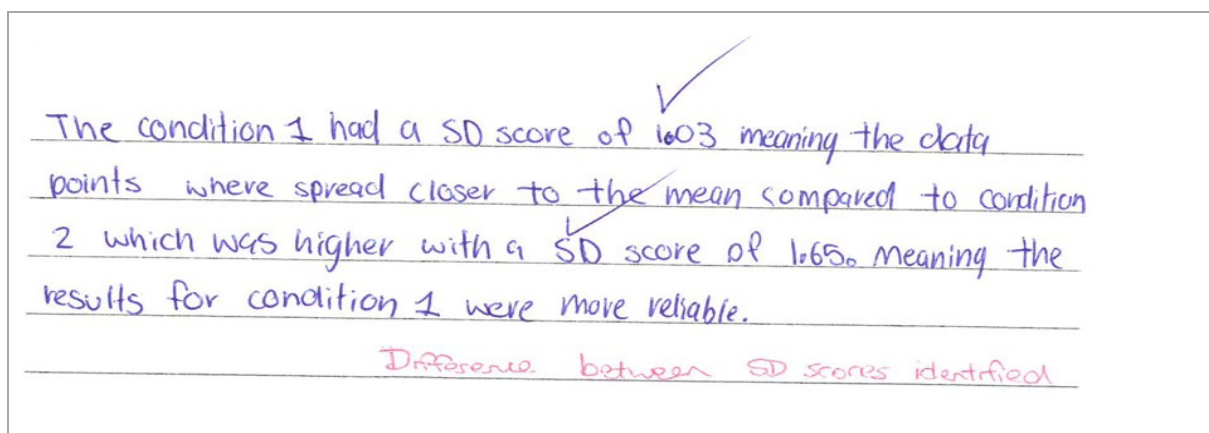 The condition 1 had a SD score of 1.03 meaning the data
points where spread closer to the mean compared to condition
2 which was higher with a SD score of 1.65. Meaning the
results for condition 1 were more reliable.
Difference between SD scores identified